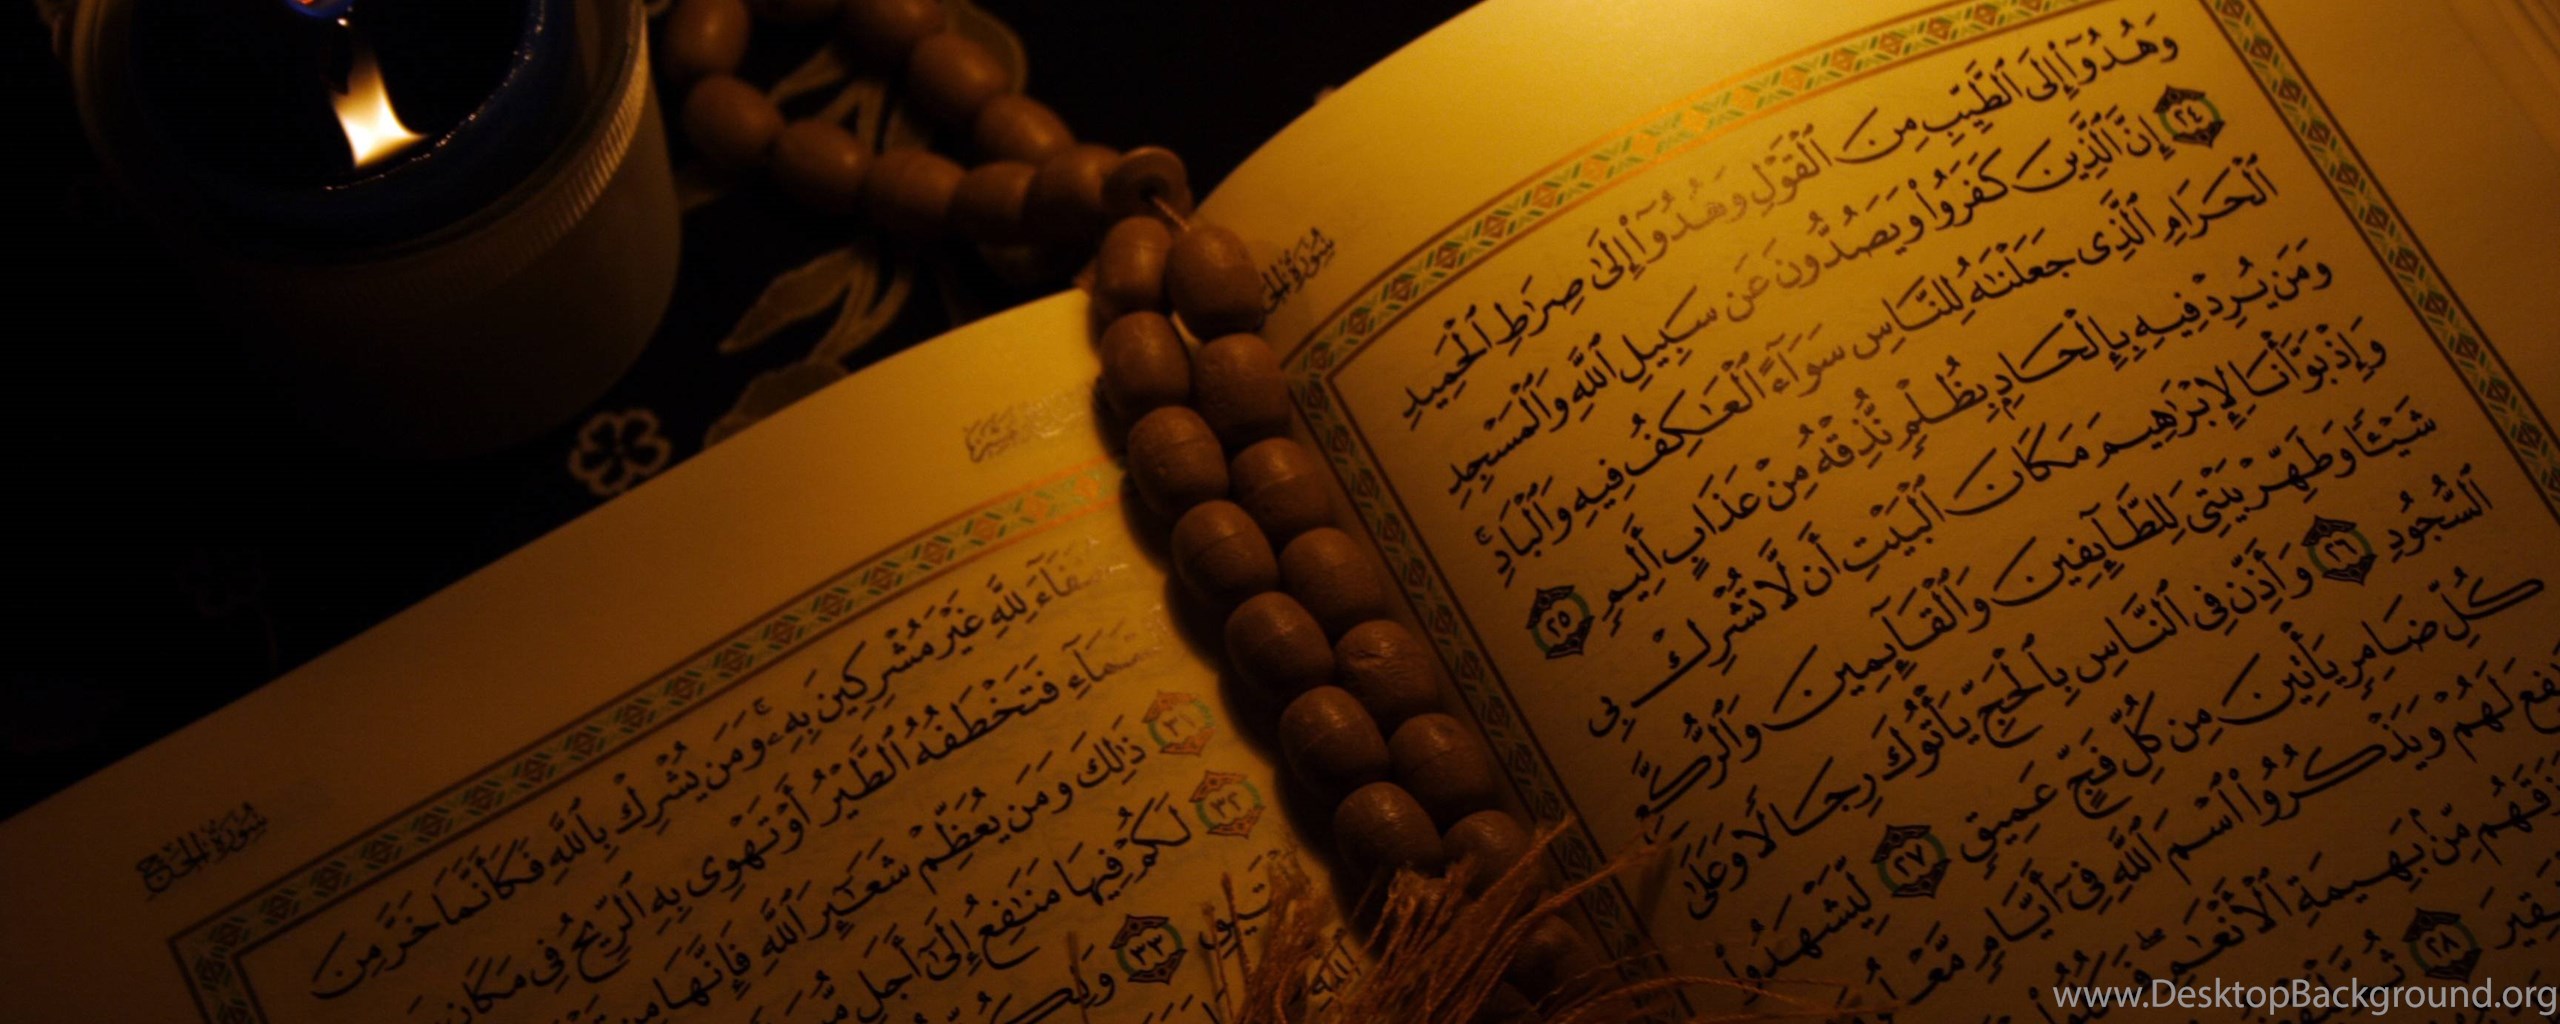 سُورَةُ الحَجِّ
وَهُدُوٓا۟ إِلَى ٱلطَّيِّبِ مِنَ ٱلْقَوْلِ وَهُدُوٓا۟ إِلَىٰ صِرَٰطِ ٱلْحَمِيدِ
٢٤ إِنَّ ٱلَّذِينَ كَفَرُوا۟ وَيَصُدُّونَ عَن سَبِيلِ ٱللَّهِ وَٱلْمَسْجِدِ
ٱلْحَرَامِ ٱلَّذِى جَعَلْنَٰهُ لِلنَّاسِ سَوَآءً ٱلْعَٰكِفُ فِيهِ وَٱلْبَادِ ۚ
وَمَن يُرِدْ فِيهِ بِإِلْحَادٍۭ بِظُلْمٍ نُّذِقْهُ مِنْ عَذَابٍ أَلِيمٍ ٢٥
وَإِذْ بَوَّأْنَا لِإِبْرَٰهِيمَ مَكَانَ ٱلْبَيْتِ أَن لَّا تُشْرِكْ بِى
شَيْـًٔا وَطَهِّرْ بَيْتِىَ لِلطَّآئِفِينَ وَٱلْقَآئِمِينَ وَٱلرُّكَّعِ
ٱلسُّجُودِ ٢٦ وَأَذِّن فِى ٱلنَّاسِ بِٱلْحَجِّ يَأْتُوكَ رِجَالًا وَعَلَىٰ
كُلِّ ضَامِرٍ يَأْتِينَ مِن كُلِّ فَجٍّ عَمِيقٍ ٢٧ لِّيَشْهَدُوا۟
لَهُمْ وَيَذْكُرُوا۟ ٱسْمَ ٱللَّهِ فِىٓ أَيَّامٍ
مِّنۢ بَهِيمَةِ ٱلْأَنْعَٰمِ
٢٨
سُورَةُ الحَجِّ
لِلَّهِ غَيْرَ مُشْرِكِينَ بِهِۦ ۚ وَمَن يُشْرِكْ بِٱللَّهِ فَكَأَنَّمَا خَرَّ مِنَ
فَتَخْطَفُهُ ٱلطَّيْرُ أَوْ تَهْوِى بِهِ ٱلرِّيحُ فِى مَكَانٍ
٣١ ذَٰلِكَ وَمَن يُعَظِّمْ شَعَٰٓئِرَ ٱللَّهِ فَإِنَّهَا مِن
٣٢ لَكُمْ فِيهَا مَنَٰفِعُ إِلَىٰٓ أَجَلٍ
٣٣
www.DesktopBackground.org